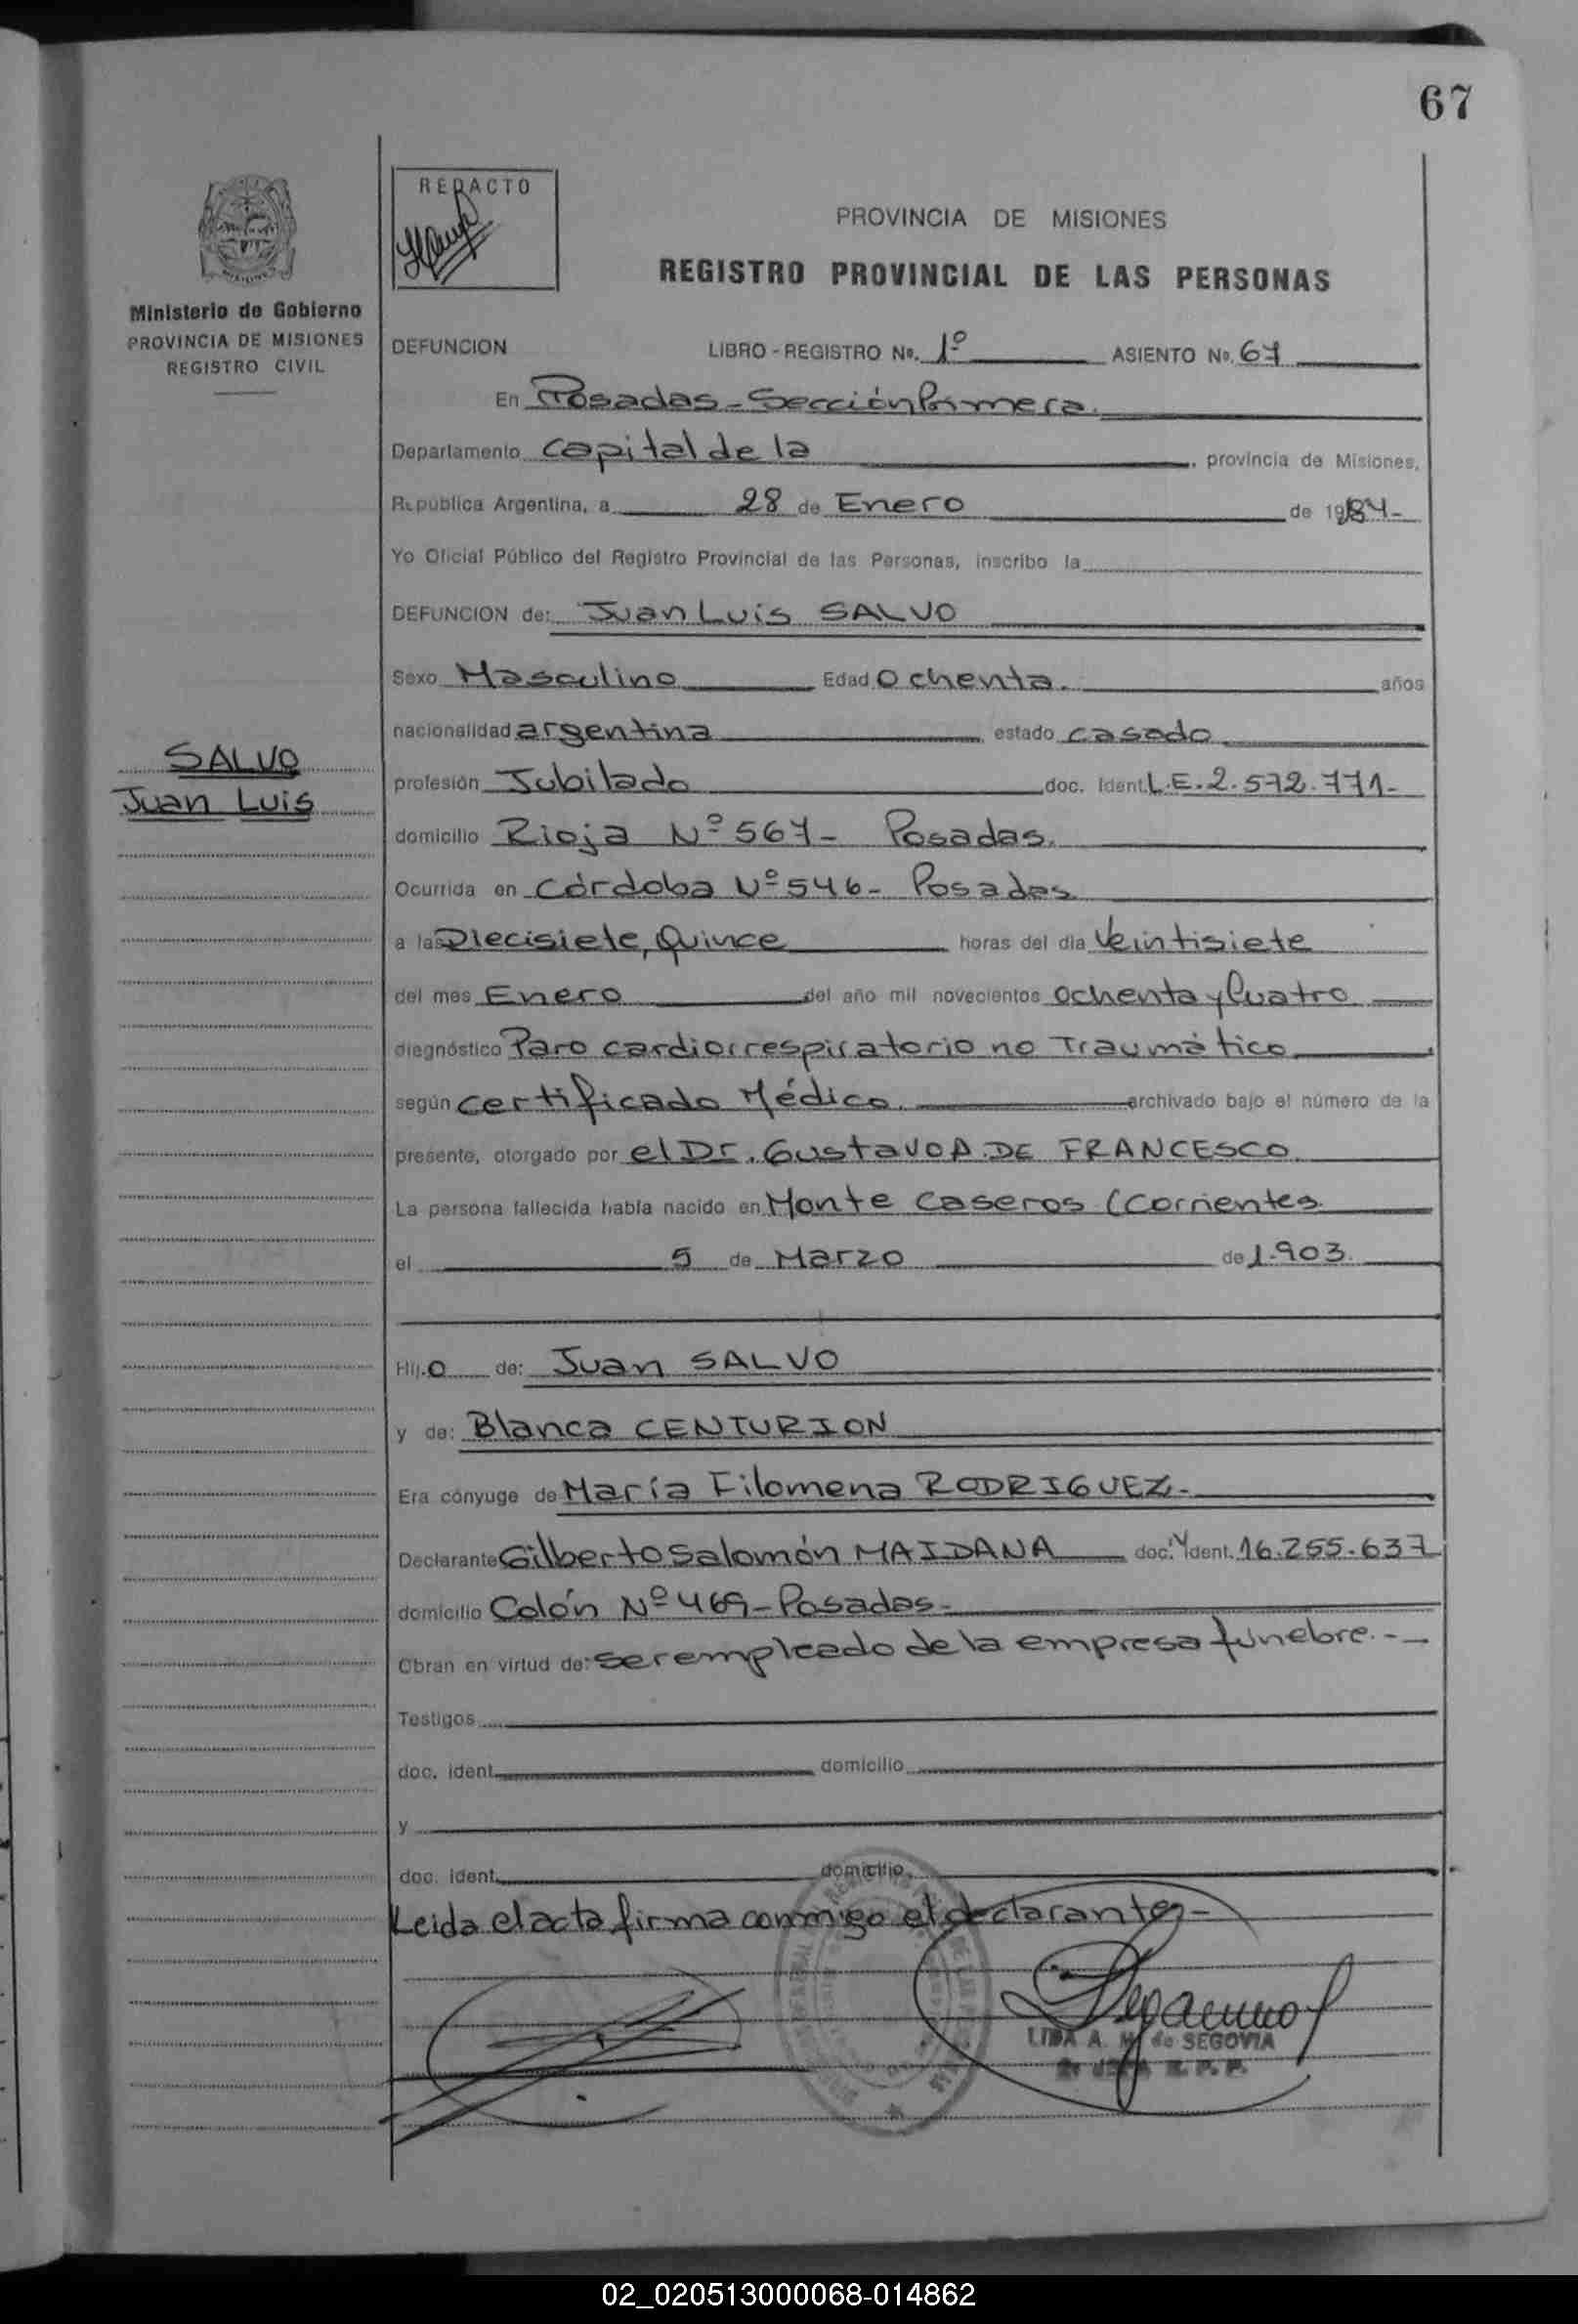 67
REDACTO
PROVINCIA DE MISIONES
REGISTRO PROVINCIAL DE LAS PERSONAS
Ministerio de Gobierno
PROVINCIA DE MISIONES
REGISTRO CIVIL
DEFUNCION LIBRO - REGISTRO No. 1º ASIENTO No. 67
En Posadas - Sección Primera.
Departamento Capital de la , provincia de Misiones,
República Argentina, a 28 de Enero de 1984-
Yo Oficial Público del Registro Provincial de las Personas, inscribo la
DEFUNCION de: Juan Luis SALVO
Sexo Masculino Edad Ochenta. años
nacionalidad argentina estado casado
SALVO
Juan Luis
profesión Jubilado doc. Ident. L.E. 2.572.771-
domicilio Rioja Nº 567- Posadas.
Ocurrida en Córdoba Nº 546- Posadas
a las Diecisiete, Quince horas del día Veintisiete
del mes Enero del año mil novecientos Ochenta y Cuatro
diagnóstico Paro cardiorrespiratorio no Traumático
según certificado Médico. archivado bajo el número de la
presente, otorgado por el Dr. Gustavo A. DE FRANCESCO.
La persona fallecida había nacido en Monte Caseros (Corrientes
el 5 de Marzo de 1.903.
Hijo de: Juan SALVO
y de: Blanca CENTURION
Era cónyuge de María Filomena RODRIGUEZ.-
Declarante Gilberto Salomón MAIDANA doc. Ident. 16.255.637
domicilio Colón Nº 469-Posadas-
Obran en virtud de: ser empleado de la empresa fúnebre.-
Testigos
doc. ident. domicilio
y
doc. ident. domicilio
Leida el acta firma conmigo el declarante-
LIDA A. M. de SEGOVIA
02_020513000068-014862